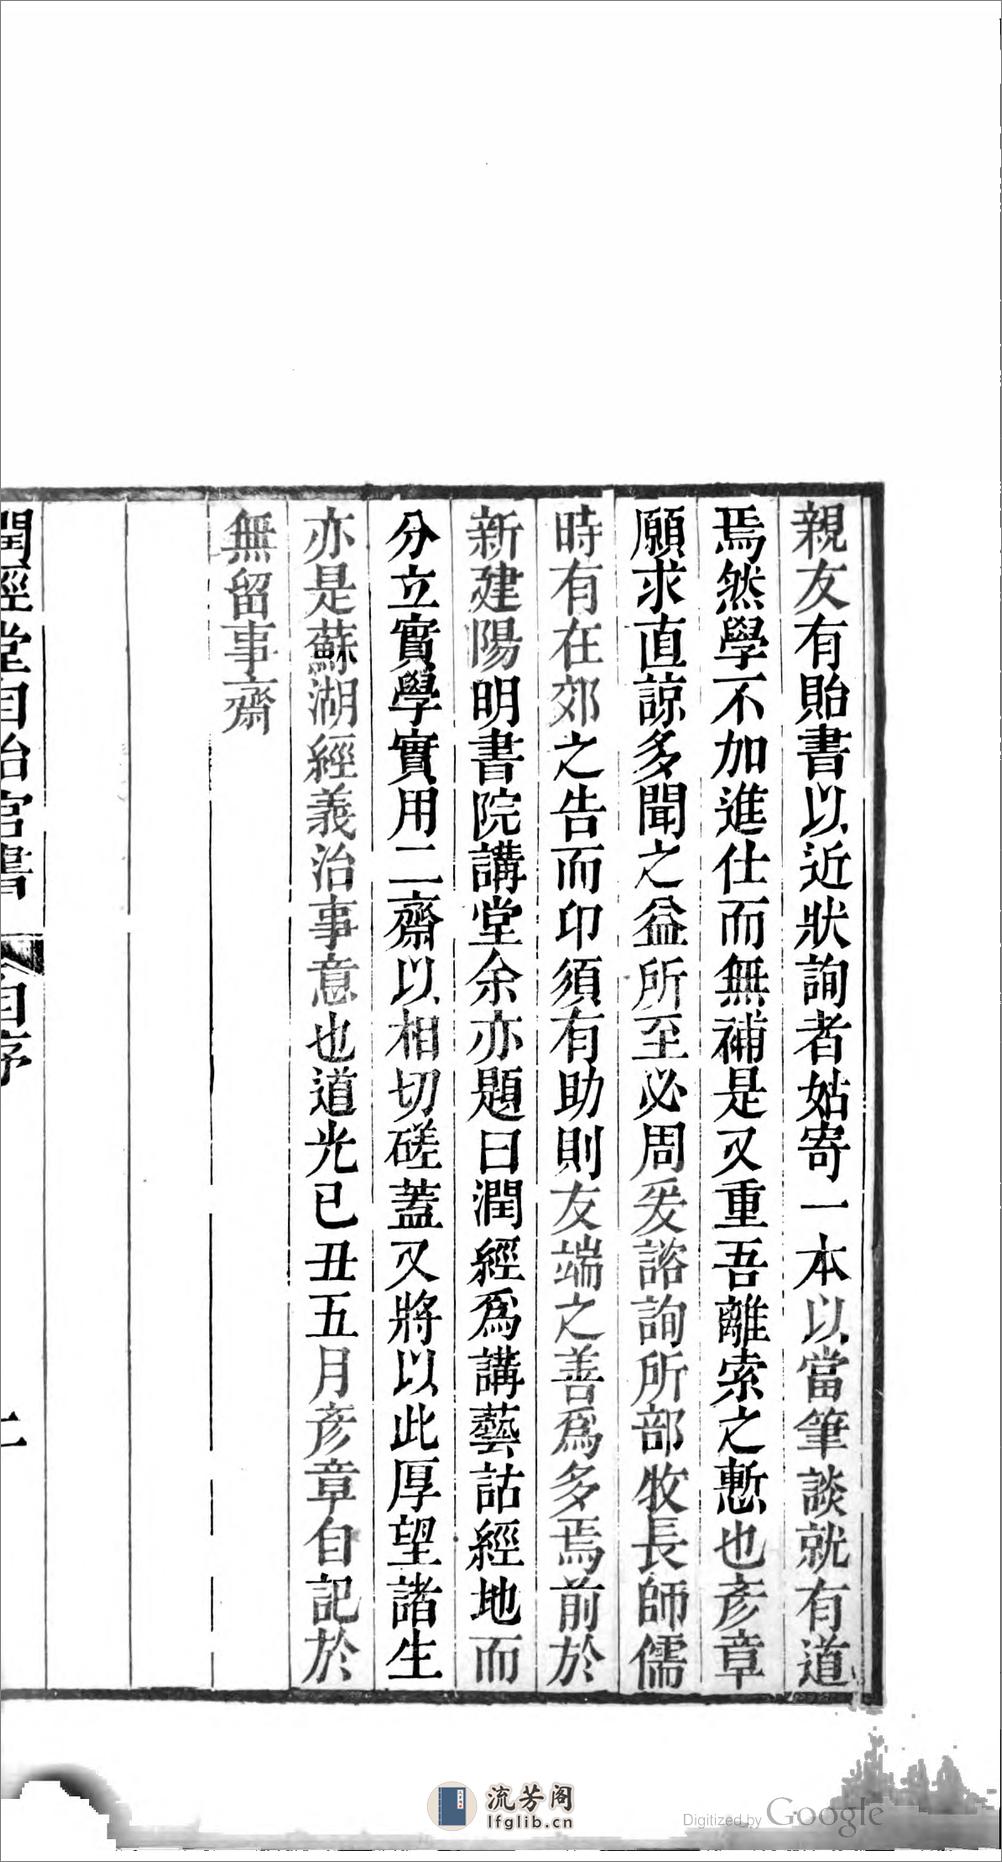 親友有貽書以近狀詢者姑寄一本以當筆談就有道
焉然學不加進仕而無補是又重吾離索之慙也彥章
願求直諒多聞之益所至必周爰諮詢所部牧長師儒
時有在郊之告而印須有助則友端之善爲多焉前於
新建陽明書院講堂余亦題曰潤經爲講藝詁經地而
分立實學實用二齋以相切磋蓋又將以此厚望諸生
亦是蘇湖經義治事意也道光已丑五月彥章自記於
無留事齋
潤經堂自治官書 自序
二
流芳阁
lfglib.cn
Digitized by Google